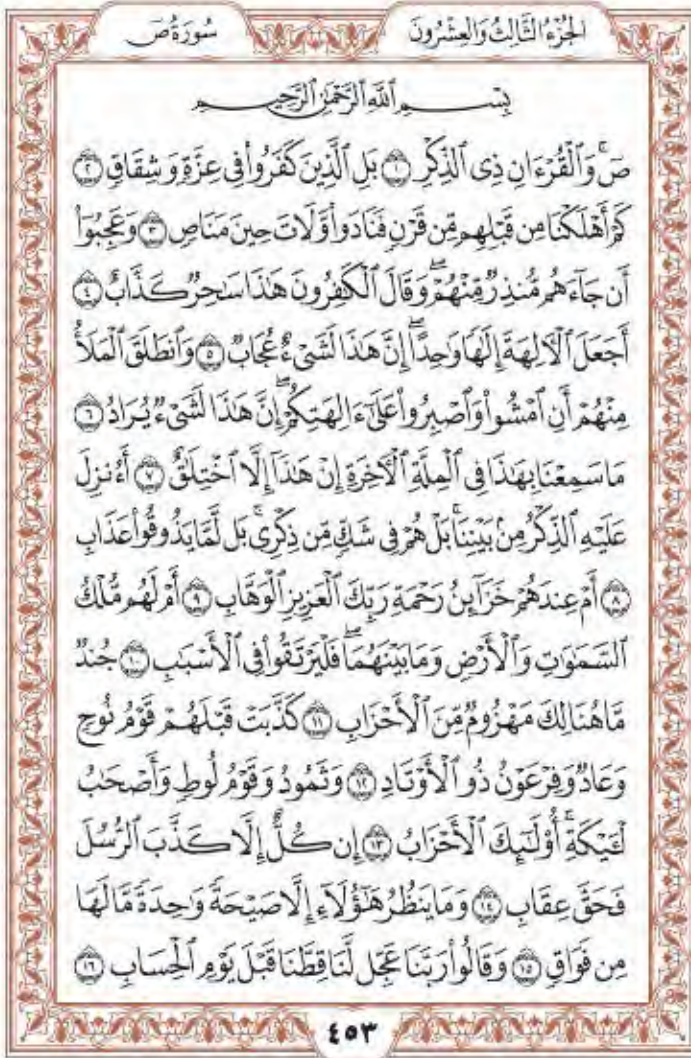 سُورَةُ صٓ
الجُزْءُ الثَّالِثُ وَالعِشْرُونَ
بِسْمِ ٱللَّهِ ٱلرَّحْمَٰنِ ٱلرَّحِيمِ
صٓۚ وَٱلْقُرْءَانِ ذِى ٱلذِّكْرِ ١ بَلِ ٱلَّذِينَ كَفَرُوا۟ فِى عِزَّةٍ وَشِقَاقٍ ٢
كَمْ أَهْلَكْنَا مِن قَبْلِهِم مِّن قَرْنٍ فَنَادَوا۟ وَّلَاتَ حِينَ مَنَاصٍ ٣ وَعَجِبُوٓا۟
أَن جَآءَهُم مُّنذِرٌ مِّنْهُمْۖ وَقَالَ ٱلْكَٰفِرُونَ هَٰذَا سَٰحِرٌ كَذَّابٌ ٤
أَجَعَلَ ٱلْـَٔالِهَةَ إِلَٰهًا وَٰحِدًاۖ إِنَّ هَٰذَا لَشَىْءٌ عُجَابٌ ٥ وَٱنطَلَقَ ٱلْمَلَأُ
مِنْهُمْ أَنِ ٱمْشُوا۟ وَٱصْبِرُوا۟ عَلَىٰٓ ءَالِهَتِكُمْۖ إِنَّ هَٰذَا لَشَىْءٌ يُرَادُ ٦
مَا سَمِعْنَا بِهَٰذَا فِى ٱلْمِلَّةِ ٱلْـَٔاخِرَةِ إِنْ هَٰذَآ إِلَّا ٱخْتِلَٰقٌ ٧ أَءُنزِلَ
عَلَيْهِ ٱلذِّكْرُ مِنۢ بَيْنِنَاۚ بَلْ هُمْ فِى شَكٍّ مِّن ذِكْرِىۚ بَل لَّمَّا يَذُوقُوا۟ عَذَابِ
٨ أَمْ عِندَهُمْ خَزَآئِنُ رَحْمَةِ رَبِّكَ ٱلْعَزِيزِ ٱلْوَهَّابِ ٩ أَمْ لَهُم مُّلْكُ
ٱلسَّمَٰوَٰتِ وَٱلْأَرْضِ وَمَا بَيْنَهُمَاۖ فَلْيَرْتَقُوا۟ فِى ٱلْأَسْبَٰبِ ١٠ جُندٌ
مَّا هُنَالِكَ مَهْزُومٌ مِّنَ ٱلْأَحْزَابِ ١١ كَذَّبَتْ قَبْلَهُمْ قَوْمُ نُوحٍ
وَعَادٌ وَفِرْعَوْنُ ذُو ٱلْأَوْتَادِ ١٢ وَثَمُودُ وَقَوْمُ لُوطٍ وَأَصْحَٰبُ
لْـَٔيْكَةِۚ أُو۟لَٰٓئِكَ ٱلْأَحْزَابُ ١٣ إِن كُلٌّ إِلَّا كَذَّبَ ٱلرُّسُلَ
فَحَقَّ عِقَابِ ١٤ وَمَا يَنظُرُ هَٰٓؤُلَآءِ إِلَّا صَيْحَةً وَٰحِدَةً مَّا لَهَا
مِن فَوَاقٍ ١٥ وَقَالُوا۟ رَبَّنَا عَجِّل لَّنَا قِطَّنَا قَبْلَ يَوْمِ ٱلْحِسَابِ ١٦
٤٥٣